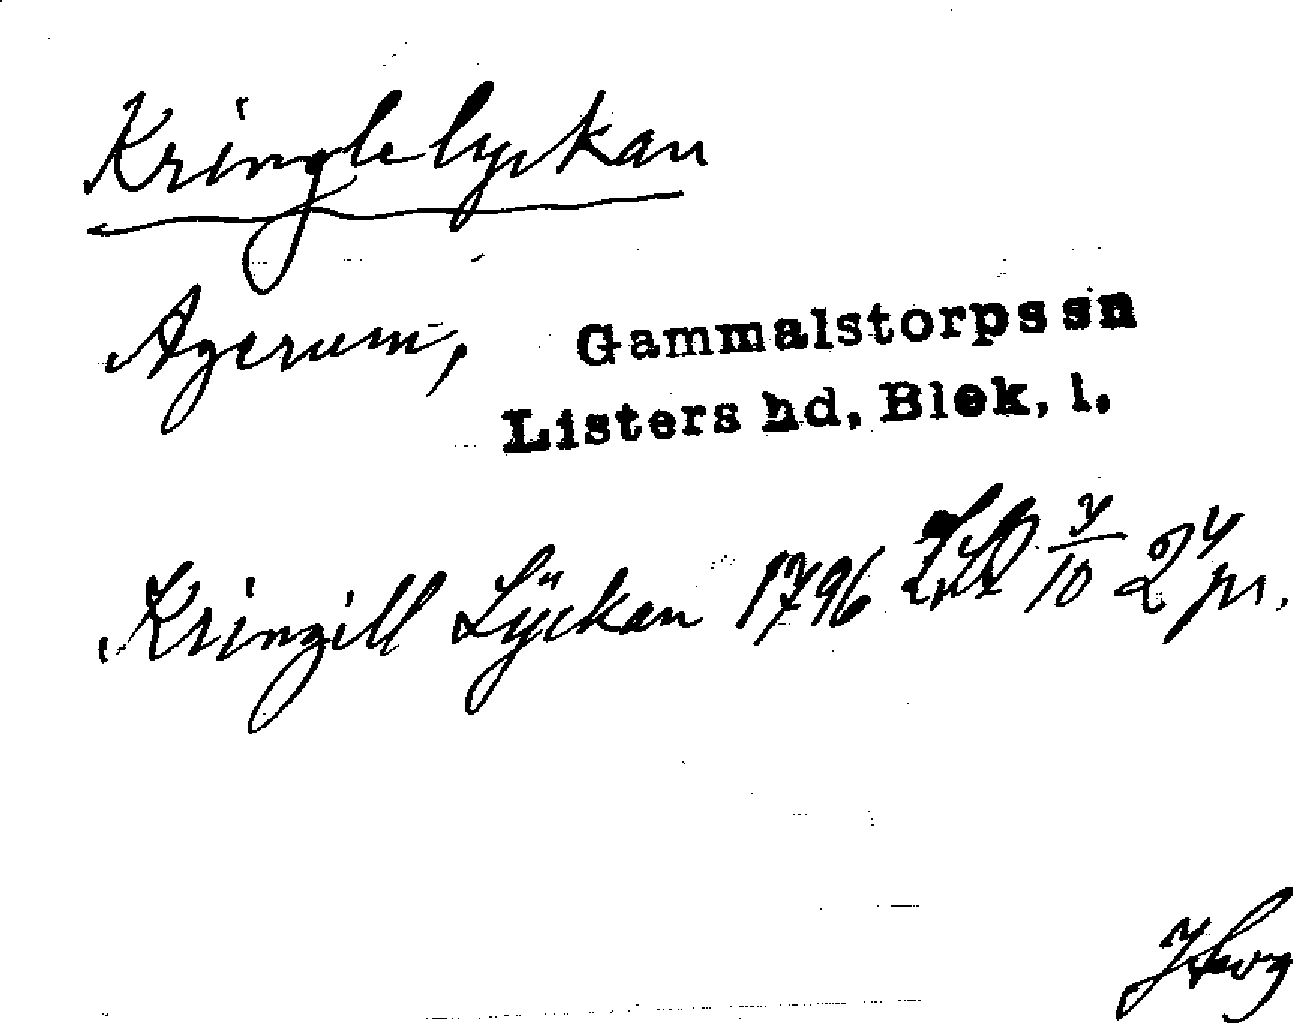 Kringlelyckan
Agerum, Gammalstorps sn
Listers hd, Blek. l.
Kringill Lÿckan 1796